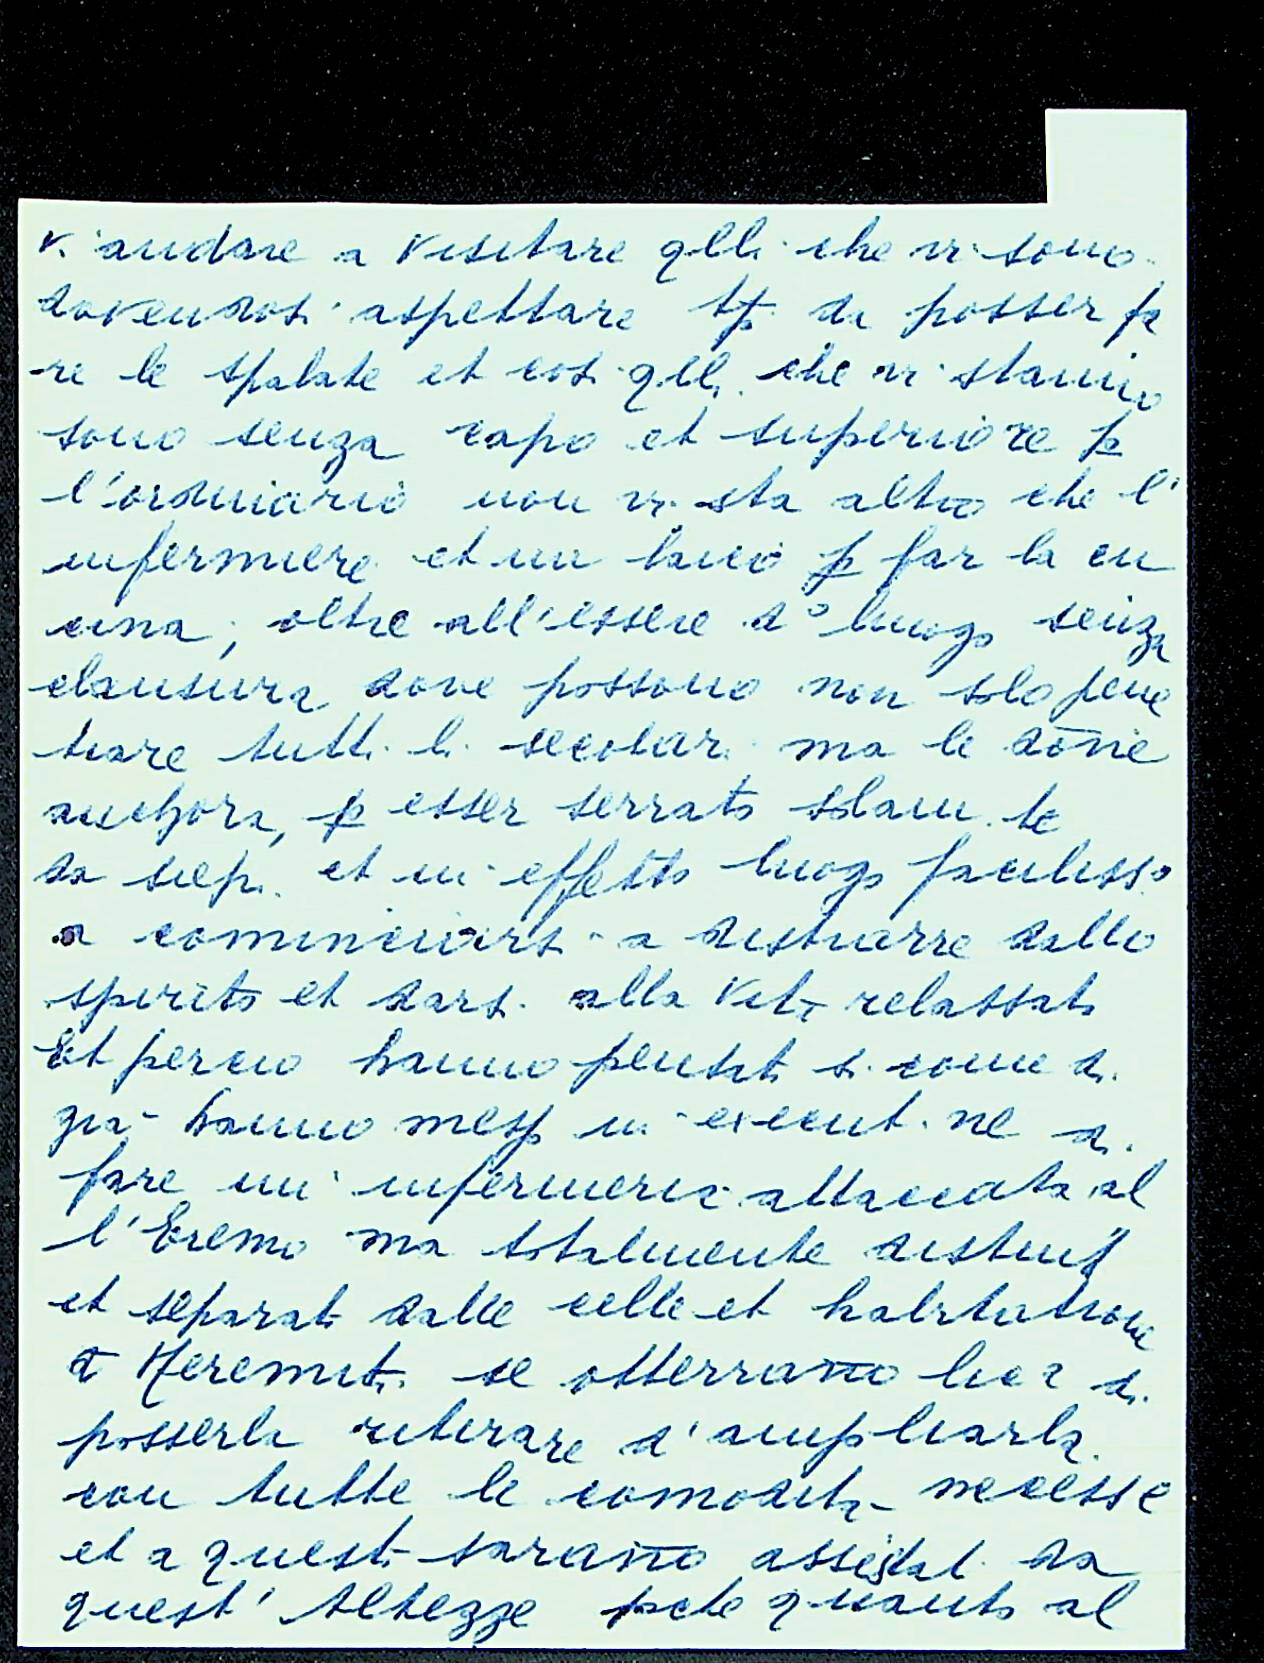 v. andare a visitare qlli che vi sono
dovendosi aspettare tp̄ da posser fa
re le spalate et cosi qlli che vi stanno
sono senza capo et superiore p̱
l'ordinario non vi sta altro che l'
infermiere et un laico p̱ far la cu
cina, oltre all'essere d° luogo senza
clausura dove possono non solo pene
trare tutti li secolari ma le dōne
anchora, p̱ esser serrato solam.te
da siepi et in effetto luogo facilisso
a cominciarsi a distrarre dallo
spirito et darsi alla vita relassata
Et percio hanno pensato si come di
gia hanno messo in execut.ne di
fare un' infermeria attaccata al
l'Eremo ma totalmente distinta
et separata dalle celle et habitatione
d Heremiti se otterranno lica di
posserla retirare d'ampliarla
con tutte le comodità necesse
et a questi saranno assistat da
quest' Altezze pche quanto al